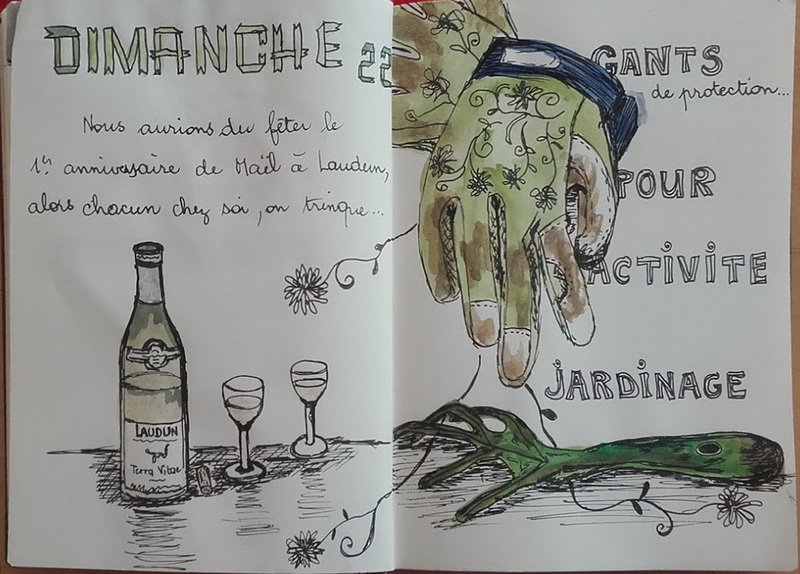 DIMANCHE 22
Nous aurions du fêter le
1er anniversaire de Maël à Laudun,
alors chacun chez soi, on trinque...
LAUDUN
Terra Vitae
GANTS
de protection...
POUR
ACTIVITE
JARDINAGE